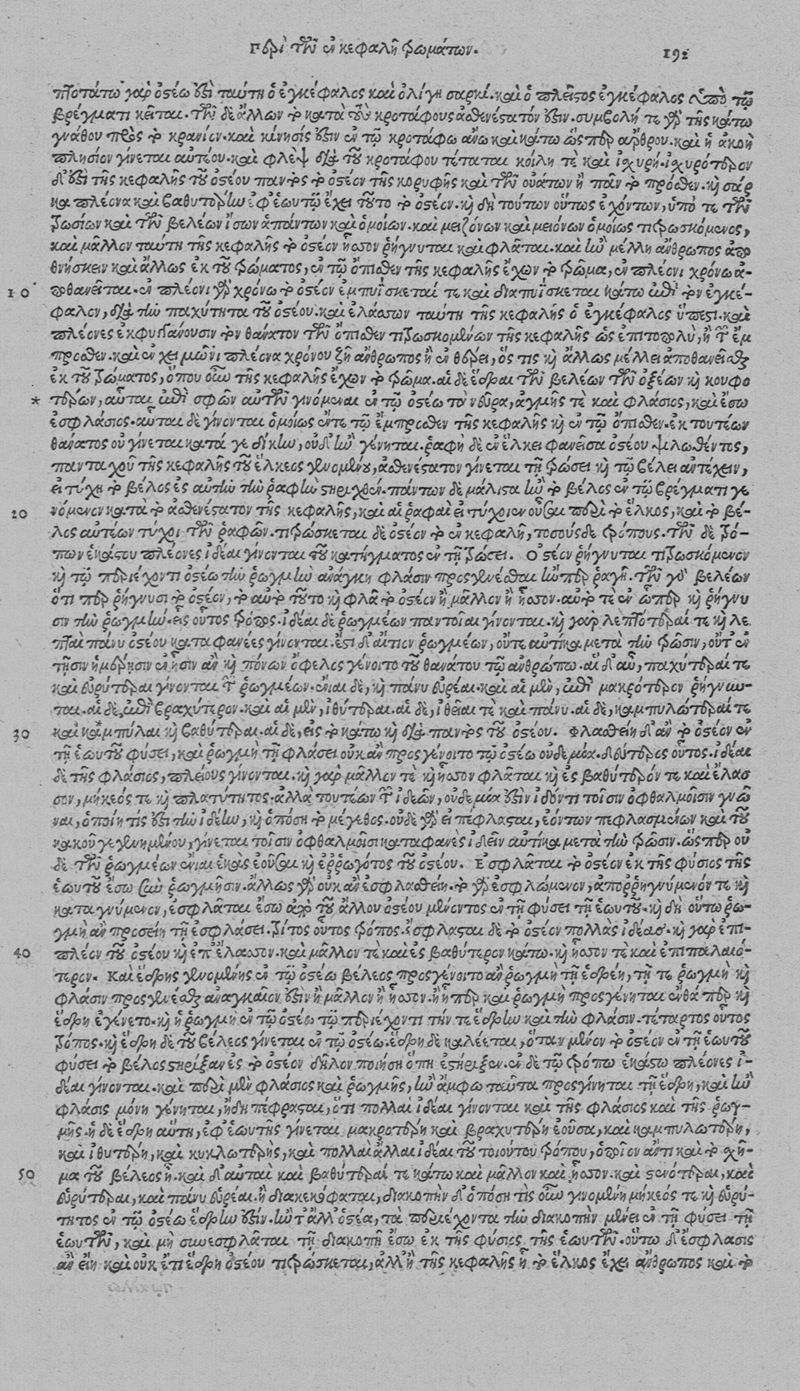 Περὶ τῶν ἐν κεφαλῇ τρωμάτων.
192
πλοτάτω γὰρ ὀστέω ἐστὶ ταύτῃ ὁ ἐγκέφαλος καὶ ὀλίγῃ σαρκί. καὶ ὁ πλεῖστος ἐγκέφαλος ὑπὸ τῷ
βρέγματι κεῖται. τῶν δὲ ἄλλων τὸ κατὰ τοὺς κροτάφους ἀσθενέστατόν ἐστιν. συμβολή τε γὰρ τῆς κάτω
γνάθου πρὸς τὸ κρανίον. καὶ κίνησις ἐστιν ἐν τῷ κροτάφῳ ἄνω καὶ κάτω ὥσπερ ἄρθρου. καὶ ἡ ἀκοὴ
πλησίον γίνεται αὐτέου. καὶ φλὲψ διὰ τοῦ κροτάφου τέταται κοίλη τὲ καὶ ἰσχυρή. ἰσχυρότερον
δ' ἐστὶ τῆς κεφαλῆς τοῦ ὀστέου παντὸς τὸ ὀστέον τῆς κορυφῆς καὶ τῶν οὐάτων ἢ πᾶν τὸ πρόσθεν. καὶ σάρ
κα πλέονα καὶ βαθυτέρην ἐφ' ἑωυτῷ ἔχει τοῦτο τὸ ὀστέον. καὶ δὴ τούτων οὕτως ἐχόντων, ὑπό τε τῶν
τρωσίων καὶ τῶν βελέων ἴσων ἁπάντων καὶ ὁμοίων. καὶ μειζόνων καὶ μειόνων ὁμοίως τιτρωσκόμενος,
καὶ μᾶλλον ταύτῃ τῆς κεφαλῆς τὸ ὀστέον ἧσσον ῥήγνυται καὶ φλᾶται. καὶ ἢν μέλλῃ ἄνθρωπος ἀπο
θνήσκειν καὶ ἄλλως ἐκ τοῦ τρώματος, ἐν τῷ ὄπισθεν τῆς κεφαλῆς ἔχων τὸ τρῶμα, ἐν πλέονι χρόνῳ ἀ-
10 ποθανεῖται. ἐν πλέονι γὰρ χρόνῳ τὸ ὀστέον ἐμπυΐσκεταί τε καὶ διαπυΐσκεται κάτω ἐπὶ τὸν ἐγκέ-
φαλον, διὰ τὴν παχύτητα τοῦ ὀστέου. καὶ ἐλάσσων ταύτῃ τῆς κεφαλῆς ὁ ἐγκέφαλος ὕπεστι. καὶ
πλέονες ἐκφυγγάνουσιν τὸν θάνατον τῶν ὄπισθεν τιτρωσκομένων τῆς κεφαλῆς ὡς ἐπιτοπολὺ, ἢ τῶν ἔμ
προσθεν. καὶ ἐν χειμῶνι πλέονα χρόνον ζῇ ἄνθρωπος ἢ ἐν θέρει, ὅς τις καὶ ἄλλως μέλλει ἀποθανεῖσθαι
ἐκ τοῦ τρώματος, ὅπου οὖν τῆς κεφαλῆς ἔχων τὸ τρῶμα. αἱ δὲ ἕδραι τῶν βελέων τῶν ὀξέων καὶ κουφο
* τέρων, αὗται ἐπὶ σφῶν αὐτῶν γινόμεναι ἐν τῷ ὀστέῳ ἄνευ, ἀγμῆς τὲ καὶ φλάσιος, καὶ ἔσω
ἐσφλάσιος. αὗται δὲ γίνονται ὁμοίως ἔν τε τῷ ἔμπροσθεν τῆς κεφαλῆς καὶ ἐν τῷ ὄπισθεν. ἐκ τουτέων
θάνατος οὐ γίνεται κατά γε δίκην, οὐδ' ἢν γένηται. ῥαφὴ δὲ ἐν ἕλκει φανεῖσα ὀστέου ψιλωθέντος,
πανταχοῦ τῆς κεφαλῆς τοῦ ἕλκεος γενομένου, ἀσθενέστατον γίνεται τῇ τρώσει καὶ τῷ βέλει ἀντέχειν,
εἰ τύχῃ τὸ βέλος ἐς αὐτὴν τὴν ῥαφὴν στηριχθέν. πάντων δὲ μάλιστα ἢν τὸ βέλος ἐν τῷ βρέγματι γε
20 νόμενον κατὰ τὸ ἀσθενέστατον τῆς κεφαλῆς, καὶ αἱ ῥαφαὶ εἰ τύχοιεν οὖσαι περὶ τὸ ἕλκος, καὶ τὸ βέ-
λος αὐτέων τύχοι τῶν ῥαφῶν. τιτρώσκεται δὲ ὀστέον τὸ ἐν κεφαλῇ, τοσούσδε τρόπους. τῶν δὲ τρό-
πων ἑκάστου πλέονες ἰδέαι γίνονται τοῦ κατήγματος ἐν τῇ τρώσει. Ὀστέον ῥήγνυται τιτρωσκόμενον
καὶ τῷ περιέχοντι ὀστέω τὴν ῥωγμὴν ἀνάγκη φλάσιν προσγενέσθαι ἤνπερ ῥαγῇ. τῶν γὰρ βελέων
ὅτι περ ῥήγνυσι τὸ ὀστέον, τὸ αὐτὸ τοῦτο καὶ φλᾷ τὸ ὀστέον ἢ μᾶλλον ἢ ἧσσον. αὐτό τε ἐν ᾧπερ καὶ ῥήγνυ
σιν τὴν ῥωγμήν. εἷς οὗτος τρόπος. ἰδέαι δὲ ῥωγμέων παντοῖαι γίνονται. καὶ γὰρ λεπτότεραί τε καὶ λε
πταὶ πάνυ ὀστέου καταφανέες γίνονται. ἔστι δ' αἴτιον ῥωγμέων, οὔτε αὐτίκα μετὰ τὴν τρῶσιν, οὔτ' ἐν
τῇσιν ἡμέρῃσιν ἐν ᾗσιν ἂν καὶ πόνων ὄφελος γένοιτο τοῦ θανάτου τῷ ἀνθρώπῳ. αἱ δ' αὖ, παχύτεραί τε
καὶ εὐρύτεραι γίνονται τῶν ῥωγμέων. ἔνιαι δὲ, καὶ πάνυ εὐρέαι. καὶ αἱ μὲν, ἐπὶ μακρότερον ῥήγνυν-
ται. αἱ δὲ, ἐπὶ βραχύτερον. καὶ αἱ μὲν, ἰθύτεραι. αἱ δὲ, ἰθεῖαι τὲ καὶ πάνυ. αἱ δὲ, καμπυλώτεραί τε
30 καὶ καμπύλαι καὶ βαθύτεραι. αἱ δὲ, εἰς τὸ κάτω καὶ διὰ παντὸς τοῦ ὀστέου. Φλασθείη δ' ἂν τὸ ὀστέον ἐν
τῇ ἑωυτοῦ φύσει, καὶ ῥωγμὴ τῇ φλάσει οὐκ ἂν προσγένοιτο τῷ ὀστέῳ οὐδεμία. δεύτερος οὗτος. ἰδέαι
δὲ τῆς φλάσιος, πλείους γίνονται. καὶ γὰρ μᾶλλόν τέ καὶ ἧσσον φλᾶται καὶ ἐς βαθύτερόν τε καὶ ἔλασ
σον, μήκεός τε καὶ πλατύτητος. ἀλλὰ τουτέων τῶν ἰδεῶν, οὐδεμία ἐστὶν ἰδόντι τοῖσιν ὀφθαλμοῖσιν γνῶ
ναι, ὁποίη τις ἐστὶ τὴν ἰδέην, καὶ ὁπόση τὸ μέγεθος. οὐδὲ γὰρ εἰ πέφλασται, ἐόντων πεφλασμένων καὶ τοῦ
κακοῦ γεγενημένου, γίνεται τοῖσιν ὀφθαλμοῖσι καταφανὲς ἰδεῖν αὐτίκα μετὰ τὴν τρῶσιν. ὥσπερ οὐ
δὲ τῶν ῥωγμέων ἔνιαι ἑκὰς ἐοῦσαι καὶ ἐρρωγότος τοῦ ὀστέου. Ἐσφλᾶται τὸ ὀστέον ἐκ τῆς φύσιος τῆς
ἑωυτοῦ ἔσω σὺν ῥωγμῇσιν. ἄλλως γὰρ οὐκ ἂν ἐσφλασθείη. τὸ γὰρ ἐσφλώμενον, ἀπορρηγνύμενόν τε καὶ
καταγνύμενον, ἐσφλᾶται ἔσω ἀπὸ τοῦ ἄλλου ὀστέου μένοντος ἐν τῇ φύσει τῇ ἑωυτοῦ. καὶ δὴ οὕτω ῥω-
γμὴ ἂν προσείη τῇ ἐσφλάσει. τρίτος οὗτος τρόπος. ἐσφλᾶται δὲ τὸ ὀστέον πολλὰς ἰδέας. καὶ γὰρ ἐπὶ-
40 πλέον τοῦ ὀστέου καὶ ἐπ' ἔλασσον. καὶ μᾶλλόν τε καὶ ἐς βαθύτερον κάτω. καὶ ἧσσόν τε καὶ ἐπιπολαιό-
τερον. Καὶ ἕδρης γενομένης ἐν τῷ ὀστέῳ βέλεος προσγένοιτο ἂν ῥωγμὴ τῇ ἕδρῃ, τῇ τε ῥωγμῇ καὶ
φλάσιν προσγενέσθαι ἀναγκαῖόν ἐστιν ἢ μᾶλλον ἢ ἧσσον. ἤνπερ καὶ ῥωγμὴ προσγένηται ἔνθα περ καὶ
ἕδρη ἐγένετο. καὶ ἡ ῥωγμὴ ἐν τῷ ὀστέῳ τῷ περιέχοντι τήν τε ἕδρην καὶ τὴν φλάσιν. τέταρτος οὗτος
τρόπος. καὶ ἕδρη δὲ τοῦ βέλεος γίνεται ἐν τῷ ὀστέῳ. ἕδρη δὲ καλέεται, ὅταν μένον τὸ ὀστέον ἐν τῇ ἑωυτοῦ
φύσει τὸ βέλος στηρίξαν ἐς τὸ ὀστέον δῆλον ποιήσῃ ὅπῃ ἐστήριξεν. ἐν δὲ τῷ τρόπῳ ἑκάστῳ πλέονες ἰ-
δέαι γίνονται. καὶ περὶ μὲν φλάσιος καὶ ῥωγμῆς, ἢν ἄμφω ταῦτα προσγένηται τῇ ἕδρῃ, καὶ ἢν
φλάσις μούνη γένηται, ἤδη πέφρασται, ὅτι πολλαὶ ἰδέαι γίνονται καὶ τῆς φλάσιος καὶ τῆς ῥωγ-
μῆς. ἡ δὲ ἕδρη αὕτη, ἐφ' ἑωυτῆς γίνεται μακροτέρη καὶ βραχυτέρη ἐοῦσα, καὶ καμπυλωτέρη,
καὶ ἰθυτέρη, καὶ κυκλωτέρης, καὶ πολλαὶ ἄλλαι ἰδέαι τοῦ τοιούτου τρόπου, ὁποῖον ἄντι καὶ τὸ σχῆ-
50 μα τοῦ βέλεος ᾖ. καὶ δ' αὗται καὶ βαθύτεραί τε κάτω καὶ μᾶλλον καὶ ἧσσον. καὶ στενότεραι, καὶ
εὐρύτεραι, καὶ πάνυ εὐρέαι. ἢ διακεκόφαται, διακοπὴν δ' ὁπόσῃ τις οὖν γινομένη μήκεός τε καὶ εὐρύ-
τητος ἐν τῷ ὀστέῳ ἕδρη ἐστίν. ἢν τἄλλ' ὀστέα, τὰ περιέχοντα τὴν διακοπὴν μένει ἐν τῇ φύσει τῇ
ἑωυτῶν, καὶ μὴ συνεσφλᾶται τῇ διακοπῇ ἔσω ἐκ τῆς φύσιος τῆς ἑωυτῶν. οὕτω δ' ἔσφλασις
ἂν εἴη καὶ οὐκ ἔτι ἕδρη ὀστέον τιτρώσκεται, ἄλλῃ τῆς κεφαλῆς ἢ τὸ ἕλκος ἔχει ἄνθρωπος καὶ τὸ